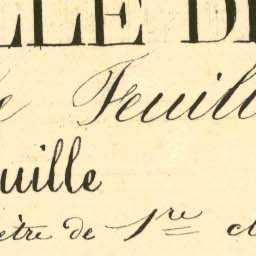 LLE DE
e Feuill
uille
ètre de 1re cl